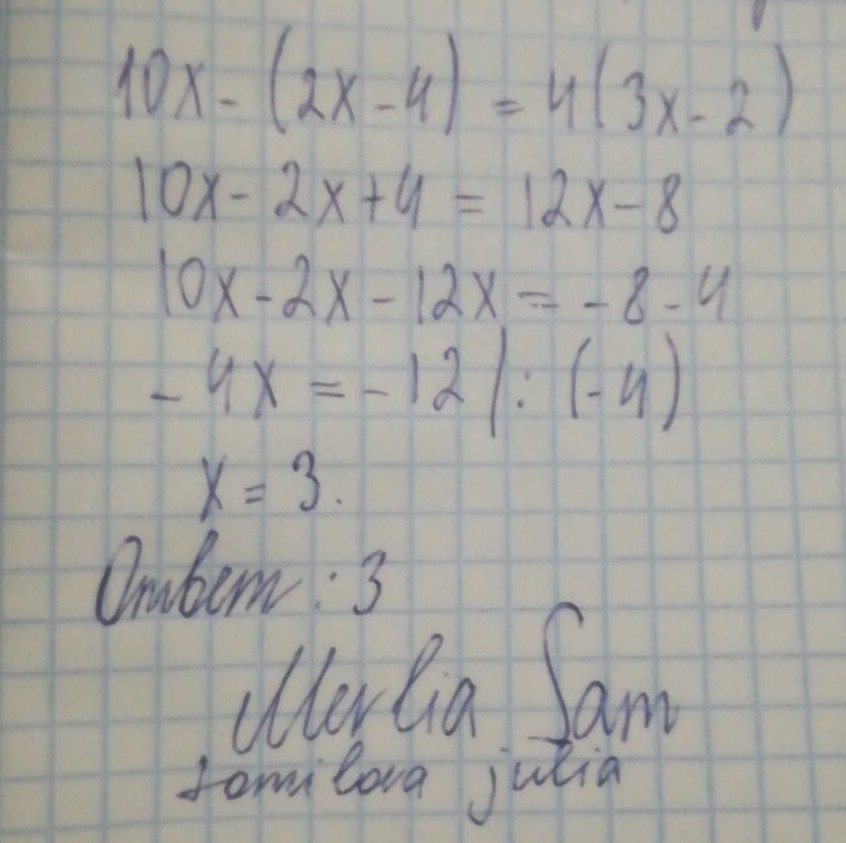 10x - (2x - 4) = 4(3x - 2)
10x - 2x + 4 = 12x - 8
10x - 2x - 12x = - 8 - 4
- 4x = - 12 | : (-4)
x = 3.
Ответ: 3
Merlia Sam
somilova julia